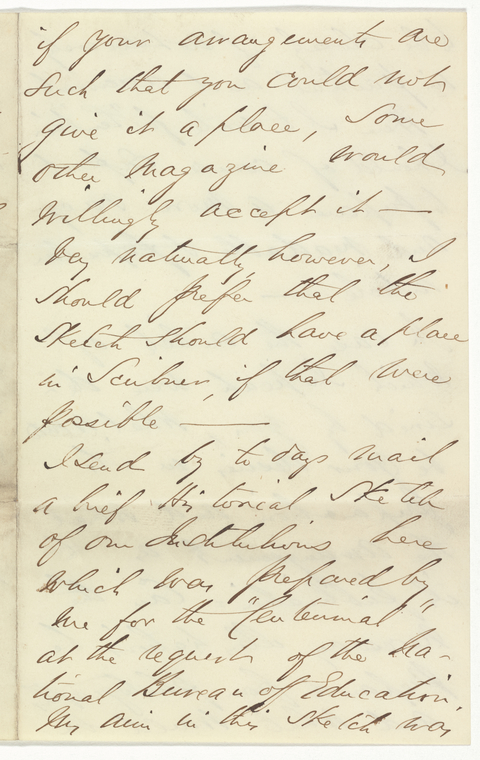 if your arrangements are
such that you could not
give it a place, some
other Magazine would
willingly accept it —
Very naturally, however, I
should prefer that the
Sketch should have a place
in Scribner, if that were
possible —
I send by to days mail
a brief Historical Sketch
of our Institutions here
which was prepared by
me for the "Centennial"
at the request of the Na-
tional Bureau of Education,
My aim in this Sketch was